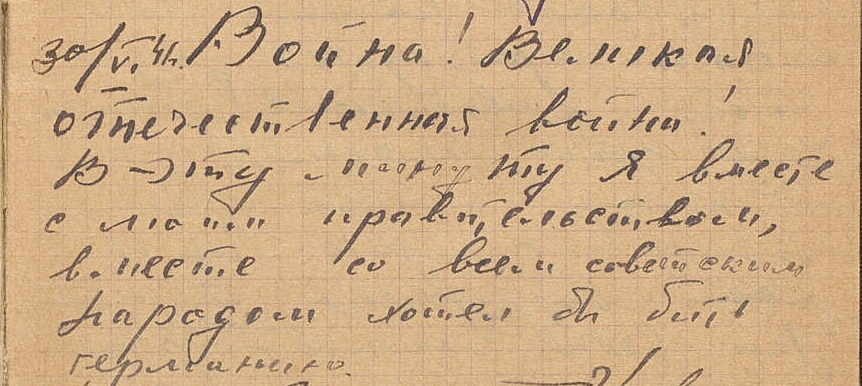 30/VI.41. Война! Великая
отечественная война!
В эту минуту я вместе
с моим правительством,
вместе со всем советским
народом хотел бы бить
германию.